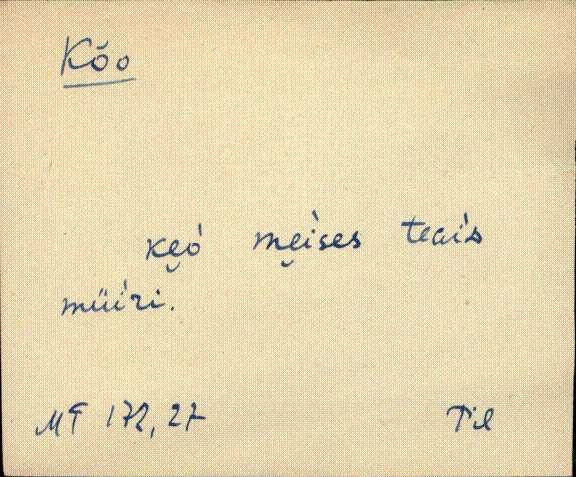 Kõo
ke̮ó me̮ìses teaìs
müìri.
MT 172, 27 Pil